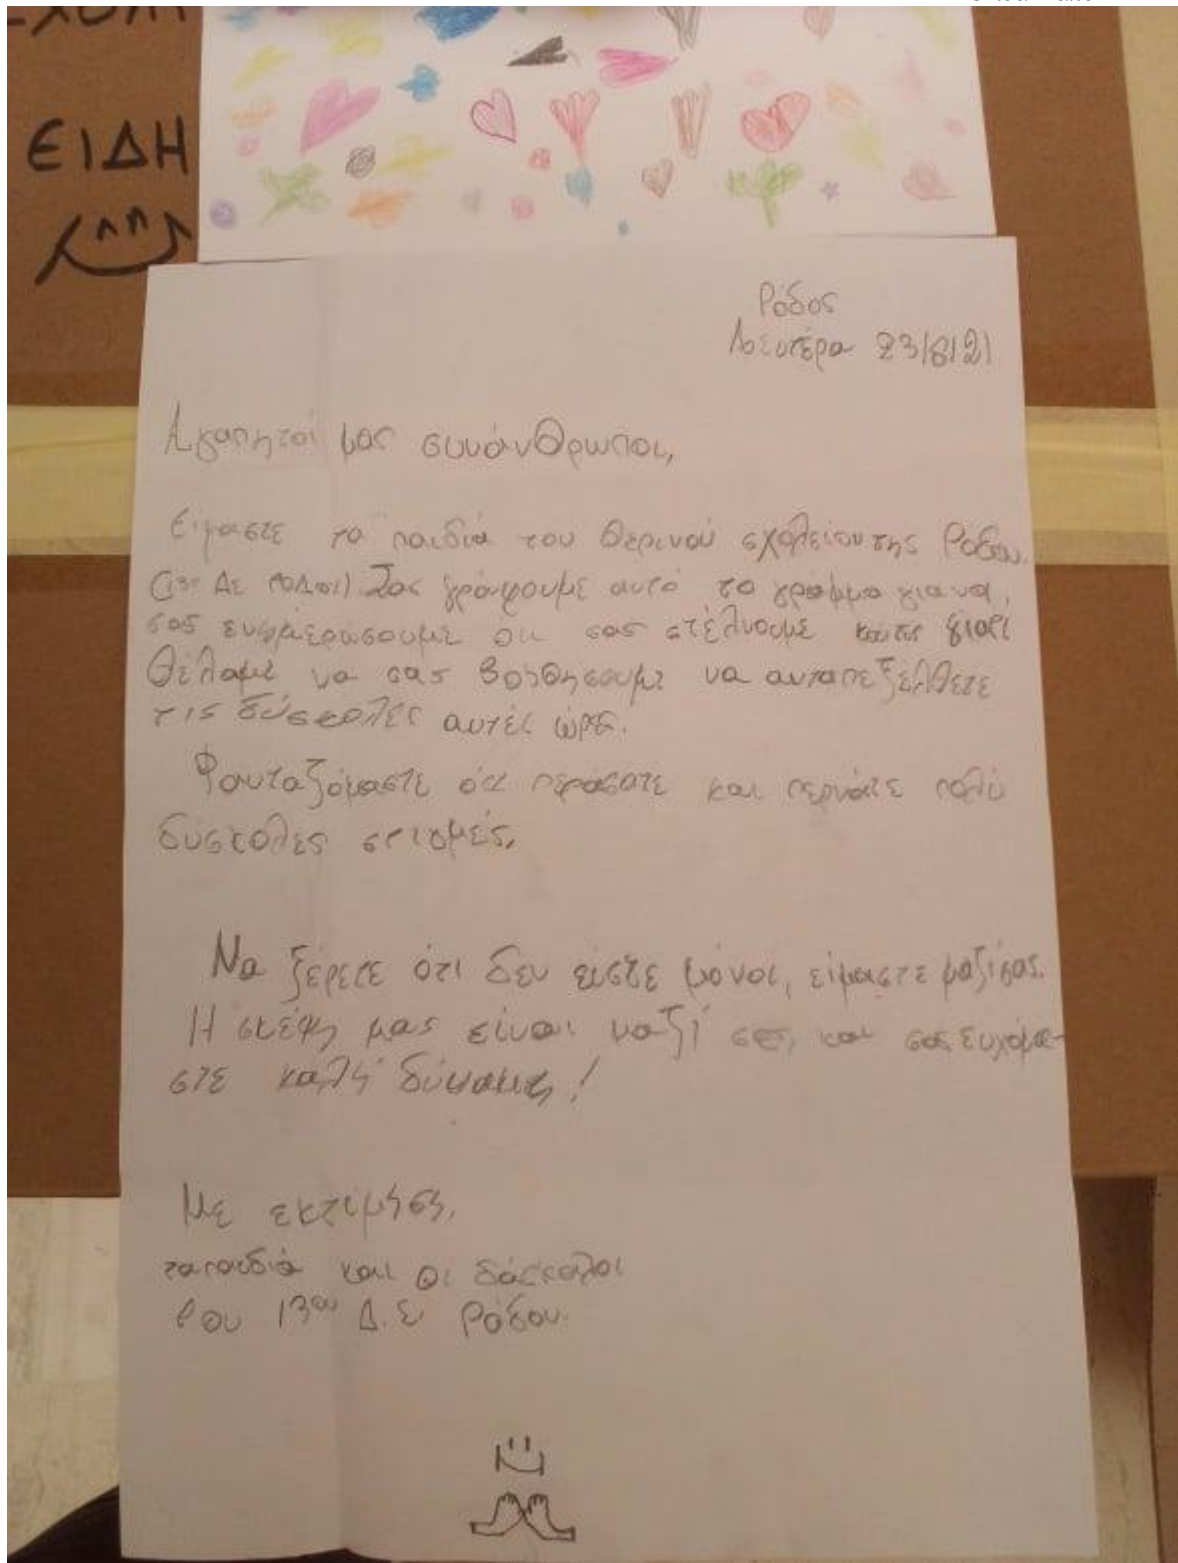 ΕΙΔΗ
Ρόδος
Δευτέρα 23/8/21
Αγαπητοί μας συνάνθρωποι,
Είμαστε τα παιδιά του θερινού σχολείου της Ρόδου.
Σας γράφουμε αυτό το γράμμα για να
σας ενημερώσουμε ότι σας στέλνουμε γιατί
θέλαμε να σας βοηθήσουμε να ανταπεξέλθετε
τις δύσκολες αυτές ώρες.
Φανταζόμαστε ότι περάσατε και περνάτε πολύ
δύσκολες στιγμές.
Να ξέρετε ότι δεν είστε μόνοι, είμαστε μαζί σας.
Η σκέψη μας είναι μαζί σας και σας ευχόμα-
στε καλή δύναμη!
Με εκτίμηση,
τα παιδιά και οι δάσκαλοι
του 13ου Δ.Σ Ρόδου.